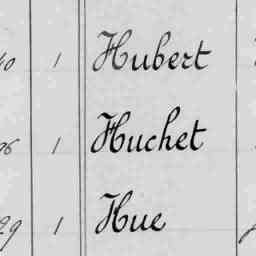 1 Hubert
1 Huchet
29 1 Hue